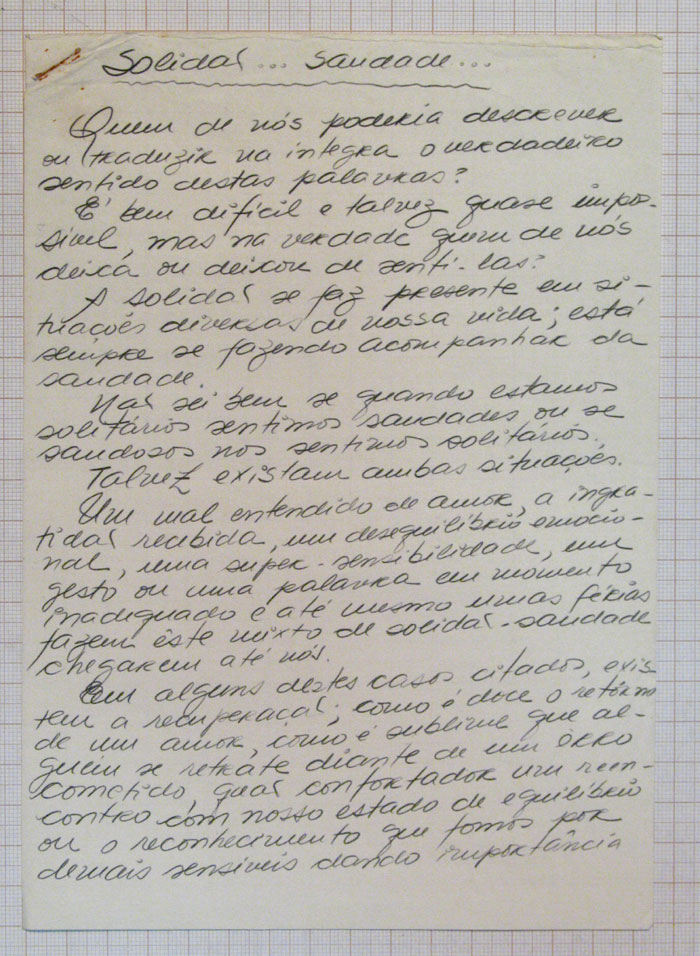 Solidaí... Saudade...
Quem de nós poderia descrever
ou traduzir na integra o verdadeiro
sentido destas palavras?
É bem difícil e talvez quase impos-
sível, mas na verdade quem de nós
deixa ou deixou de senti-las?
A solidaí se faz presente em si-
tuações diversas de nossa vida; está
sempre se fazendo acompanhar da
saudade.
Naí sei bem se quando estamos
solitários sentimos saudades ou se
saudosos nos sentimos solitários.
Talvez existam ambas situações.
Um mal entendido de amor, a ingra-
tidaí recebida, um desequilíbrio emocio-
nal, uma super-sensibilidade, um
gesto ou uma palavra em momento
inadequado e até mesmo umas férias
fazem êste mixto de solidaí-saudade
chegarem até nós.
Em alguns destes casos citados, exis
tem a recuperaçaí; como é doce o retôrno
de um amor, como é sublime que al-
guém se retrate diante de um êrro
cometido, quaí confortador um reen-
contro com nosso estado de equilíbrio
ou o reconhecimento que fomos por
demais sensíveis dando importância